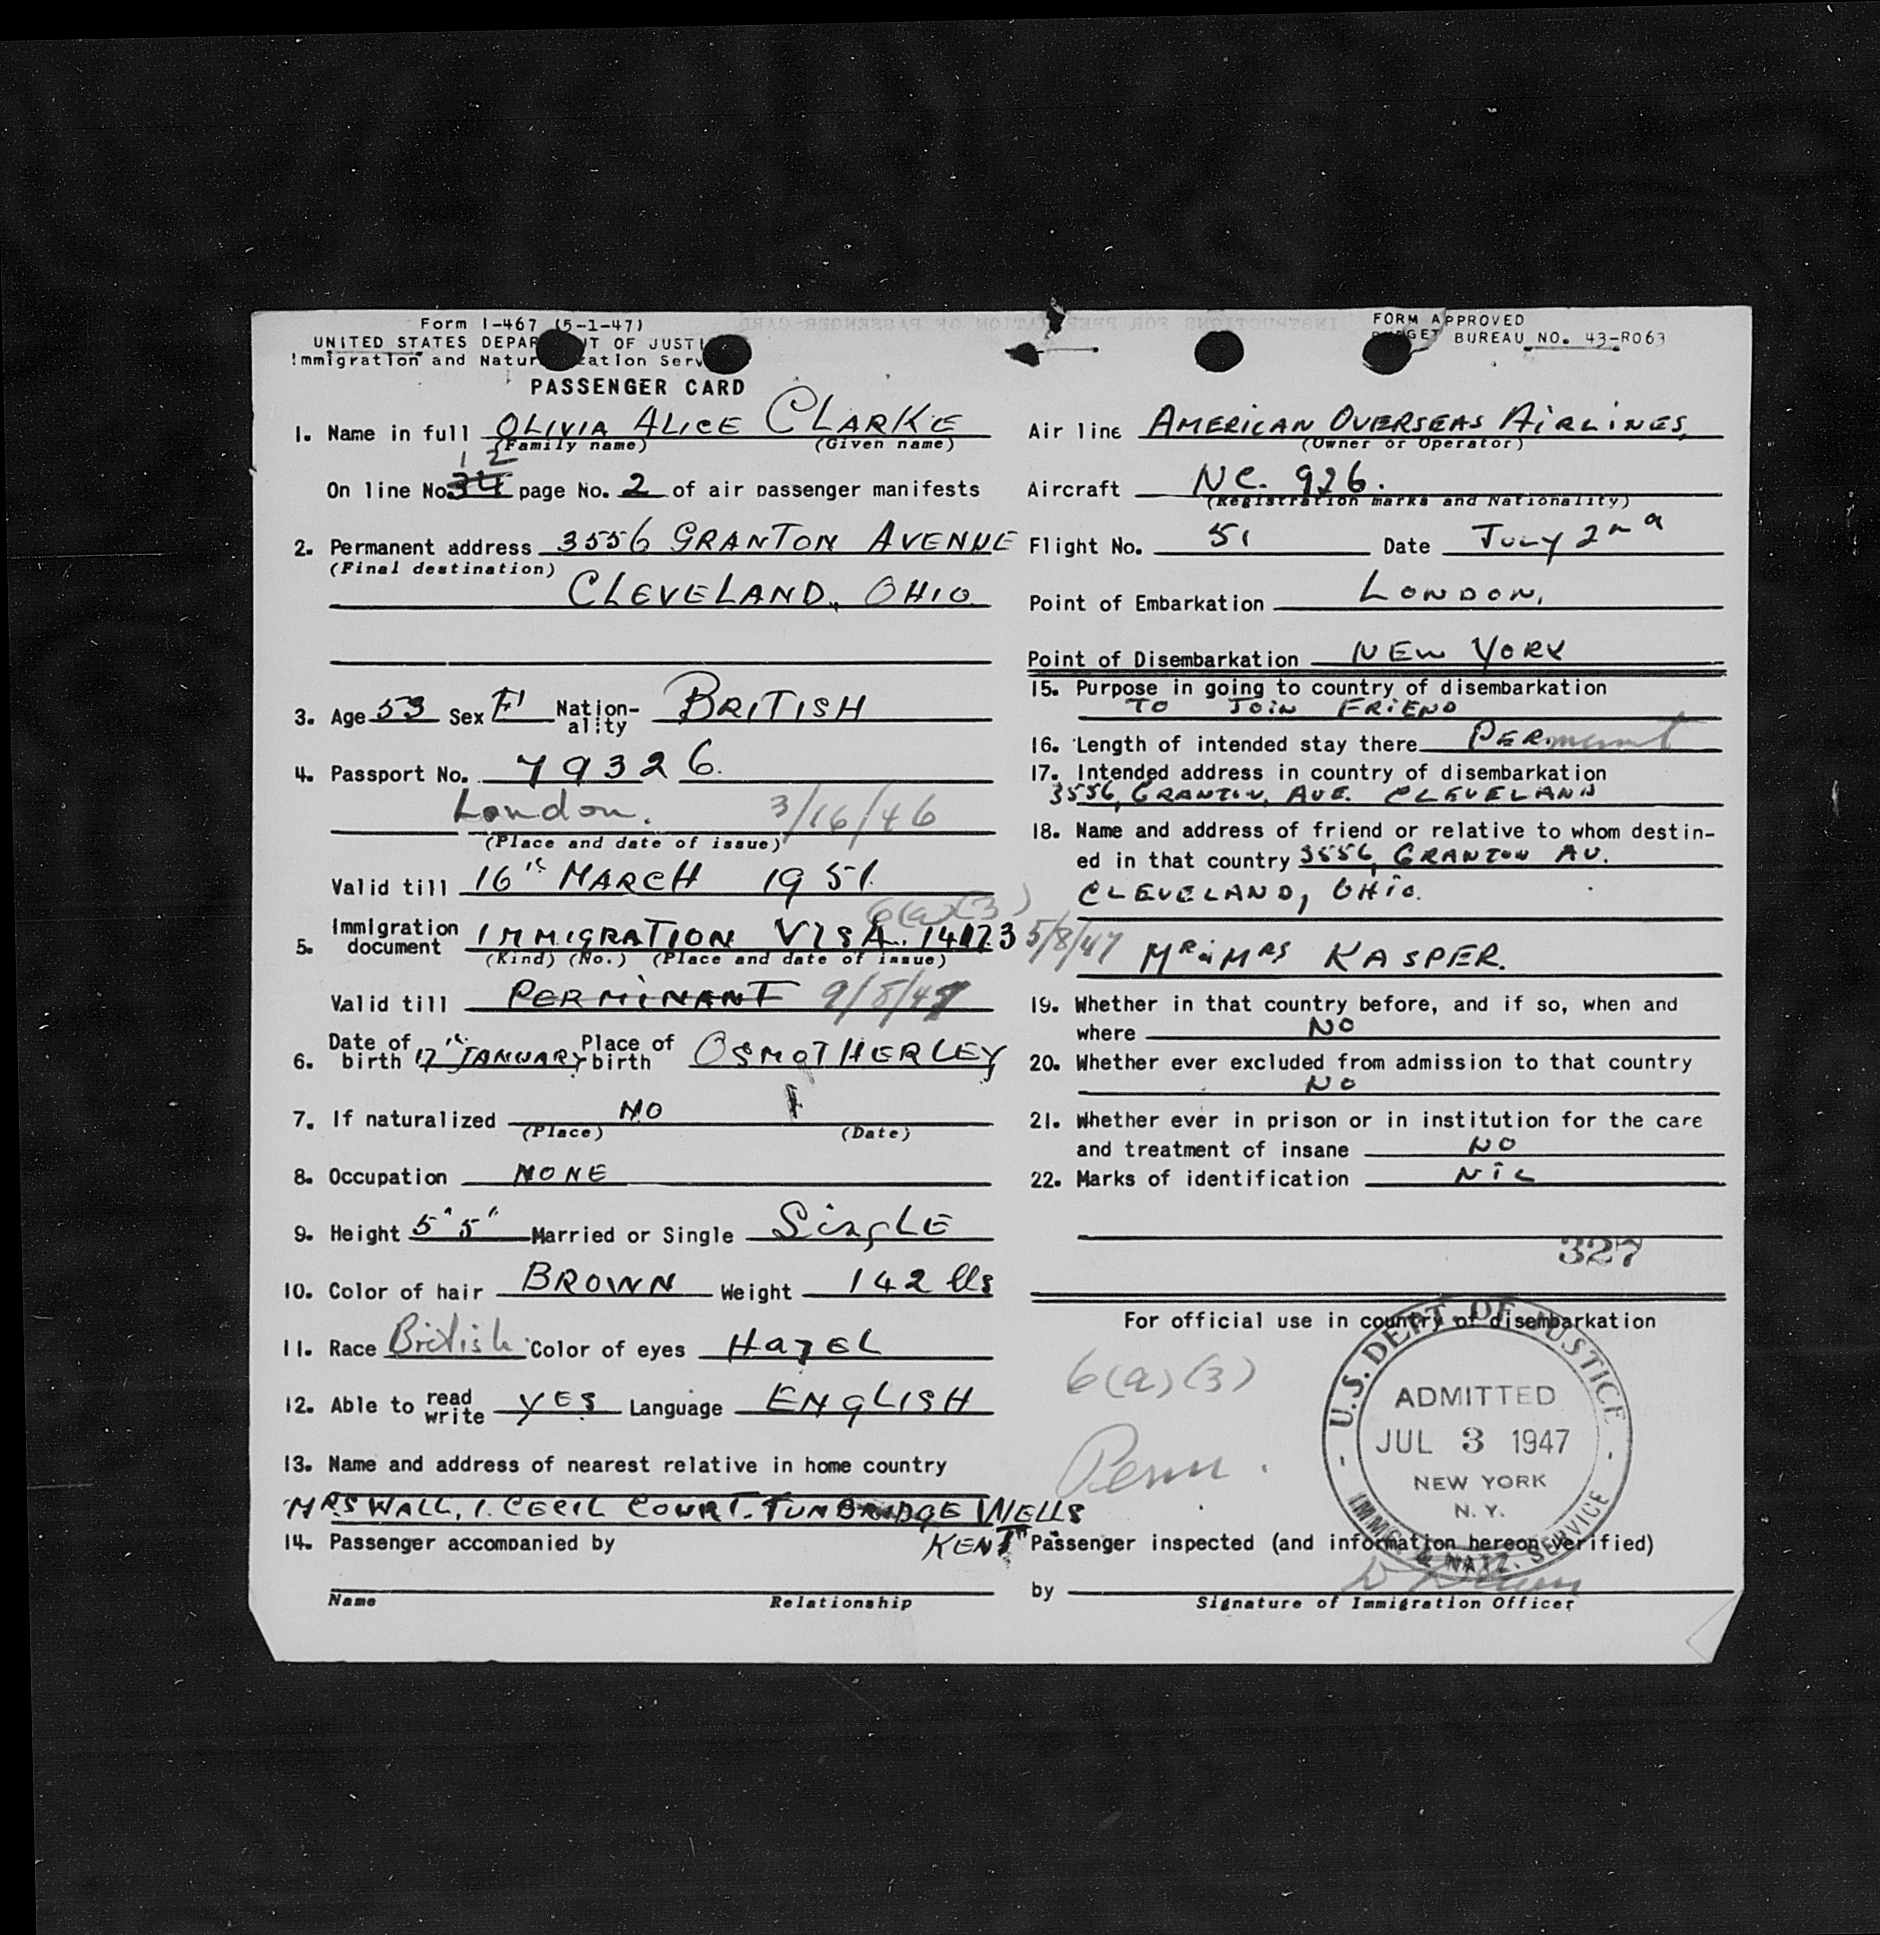 Form I-467 (5-1-47)
UNITED STATES DEPAR T OF JUSTI
Immigration and Natur zation Serv
PASSENGER CARD
FORM APPROVED
BUREAU NO. 43-R063
1. Name in full OLIVIA ALICE CLARKE
(Family name) (Given name)
12
On line No. 34 page No. 2 of air passenger manifests
2. Permanent address 3556 GRANTON AVENUE
(Final destination)
CLEVELAND, OHIO
3. Age 53 Sex F Nation-
ality BRITISH
4. Passport No. 79326.
London. 3/16/46
(Place and date of issue)
Valid till 16th MARCH 1951.
6(a)(3)
5. Immigration
document IMMIGRATION VISA. 14123 5/8/47
(Kind) (No.) (Place and date of issue)
Valid till PERMINANT 9/8/47
6. Date of
birth 17th JANUARY Place of
birth OSMOTHERLEY
7. If naturalized NO
(Place) (Date)
8. Occupation NONE
9. Height 5' 5" Married or Single SingLE
10. Color of hair BROWN Weight 142 lbs
11. Race British Color of eyes HazEL
12. Able to read
write YES Language ENGLISH
13. Name and address of nearest relative in home country
MRS WALL, 1. CECIL COURT. TUNBRIDGE WELLS
KENT"
14. Passenger accompanied by
Name Relationship
Air line AMERICAN OVERSEAS AIRLINES,
(Owner or Operator)
Aircraft NC. 926.
(Registration marks and Nationality)
Flight No. 51 Date JULY 2nd
Point of Embarkation LONDON,
Point of Disembarkation NEW YORK
15. Purpose in going to country of disembarkation
TO JOIN FRIEND
16. Length of intended stay there PERmanent
17. Intended address in country of disembarkation
3556, GRANTON, AVE. CLEVELAND
18. Name and address of friend or relative to whom destin-
ed in that country 3556, GRANTON AV.
CLEVELAND, OHIO.
MR & MRS KASPER.
19. Whether in that country before, and if so, when and
where NO
20. Whether ever excluded from admission to that country
NO
21. Whether ever in prison or in institution for the care
and treatment of insane NO
22. Marks of identification NIL
327
For official use in country of disembarkation
6(a)(3)
Perm.
U.S. DEPT. OF JUSTICE
ADMITTED
JUL 3 1947
NEW YORK
N. Y.
IMMG. & NATZ. SERVICE
Passenger inspected (and information hereon verified)
by
Signature of Immigration Officer